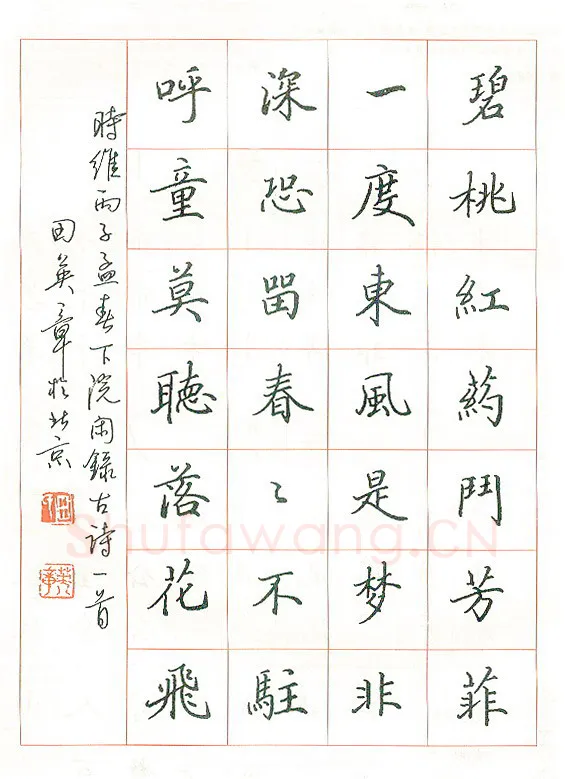 碧桃紅药鬥芳菲
一度東風是梦非
深恐畱春〻不駐
呼童莫聽落花飛
時維丙子孟春下院閑錄古诗一首
田英章於北京
田
英章
Shufawang.CN